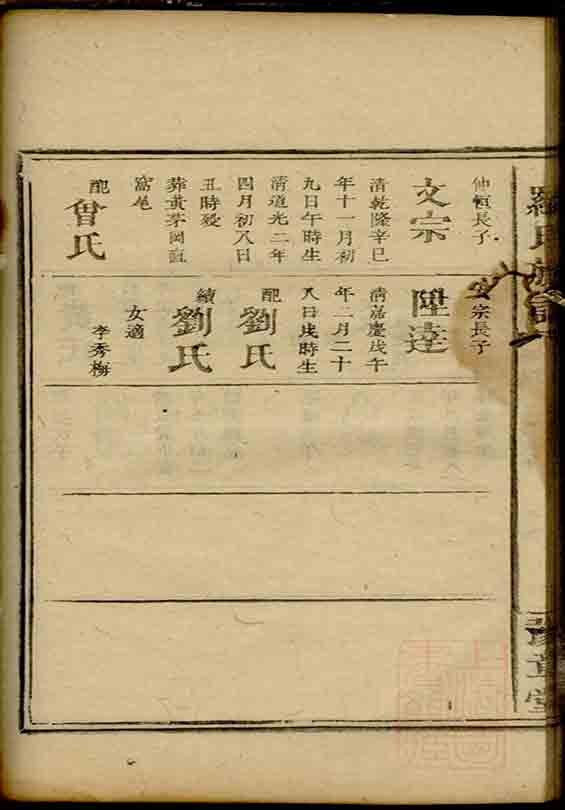 羅氏族譜
仲恒長子
文宗
清乾隆辛巳
年十一月初
九日午時生
清道光二年
四月初八日
丑時歿
葬黃茅岡直
窩尾
配
曾氏
文宗長子
陞達
清嘉慶戊午
年二月二十
八日戌時生
配
劉氏
續
劉氏
女適
李秀梅
豫章堂